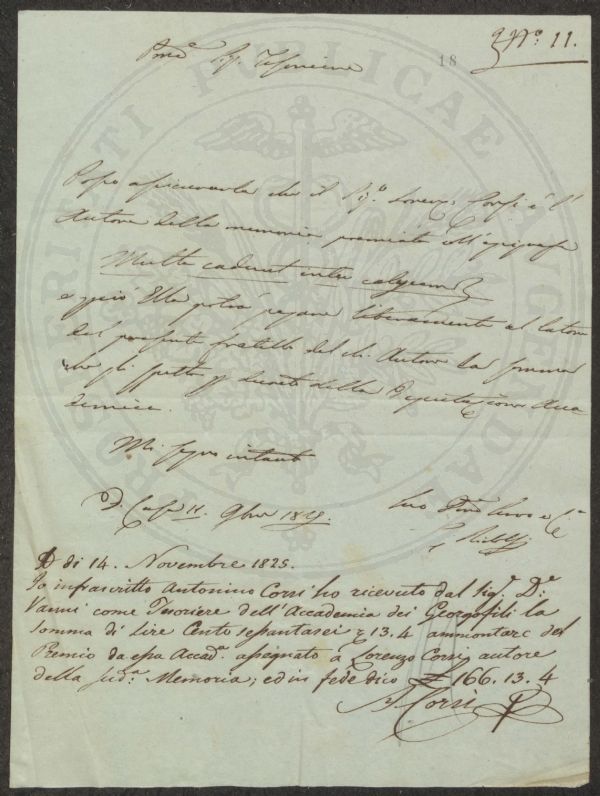 N.° 11.
18
Pmo. Sig. Tesoriere
Posso assicurarla che il Sig.° Lorenzo Corsi è l'
Autore della memoria premiata coll'epigrafe
Multa cadunt inter
e perciò Ella potrà pagare liberamente al latore
del presente fratello del d. Autore la somma
che gli spetta p decreto della Deputazione Acca
demica.
Mi segno intanto
Di Casa 11. 9bre 1825.
Suo Servo e
A di 14. Novembre 1825.
Io infrascritto Antonino Corsi ho ricevuto dal Sig.r D.r
Vanni come Tesoriere dell'Accademia dei Georgofili la
somma di lire Cento sessantasei e 13. 4 ammontare del
Premio da essa Accad.a assegnato a Lorenzo Corsi autore
della sud.a Memoria; ed in fede dico £ 166. 13. 4
A. Corsi
PROSPERITATI PUBLICAE AUGENDAE